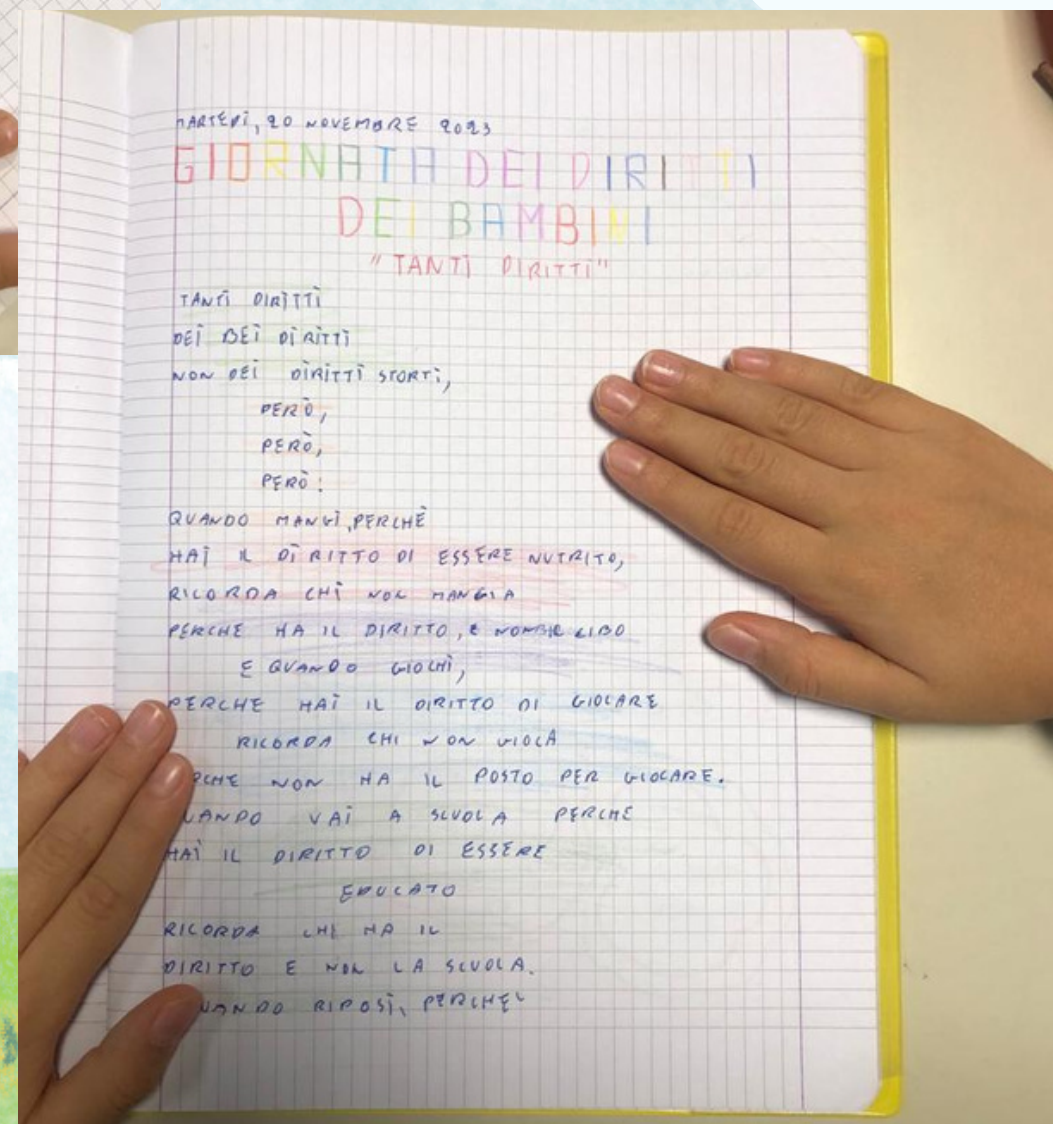 MARTEDÌ, 20 NOVEMBRE 2023
GIORNATA DEI DIRITTI
DEI BAMBINI
"TANTI DIRITTI"
TANTI DIRITTI
DEI BEI DIRITTI
NON DEI DIRITTI STORTI,
PERÒ,
PERÒ,
PERÒ:
QUANDO MANGI, PERCHÈ
HAI IL DIRITTO DI ESSERE NUTRITO,
RICORDA CHI NON MANGIA
PERCHE HA IL DIRITTO, E IL CIBO
E QUANDO GIOCHI,
PERCHE HAI IL DIRITTO DI GIOCARE
RICORDA CHI NON GIOCA
NON HA IL POSTO PER GIOCARE.
VAI A SCUOLA PERCHE
HAI IL DIRITTO DI ESSERE
EDUCATO
RICORDA CHI HA IL
DIRITTO E NON LA SCUOLA.
RIPOSI, PERCHE'